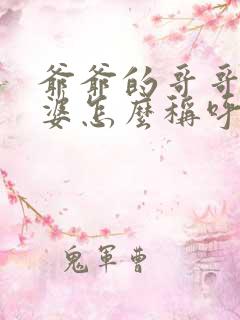 爺爺的哥哥
婆怎麼稱呼
鬼軍曹